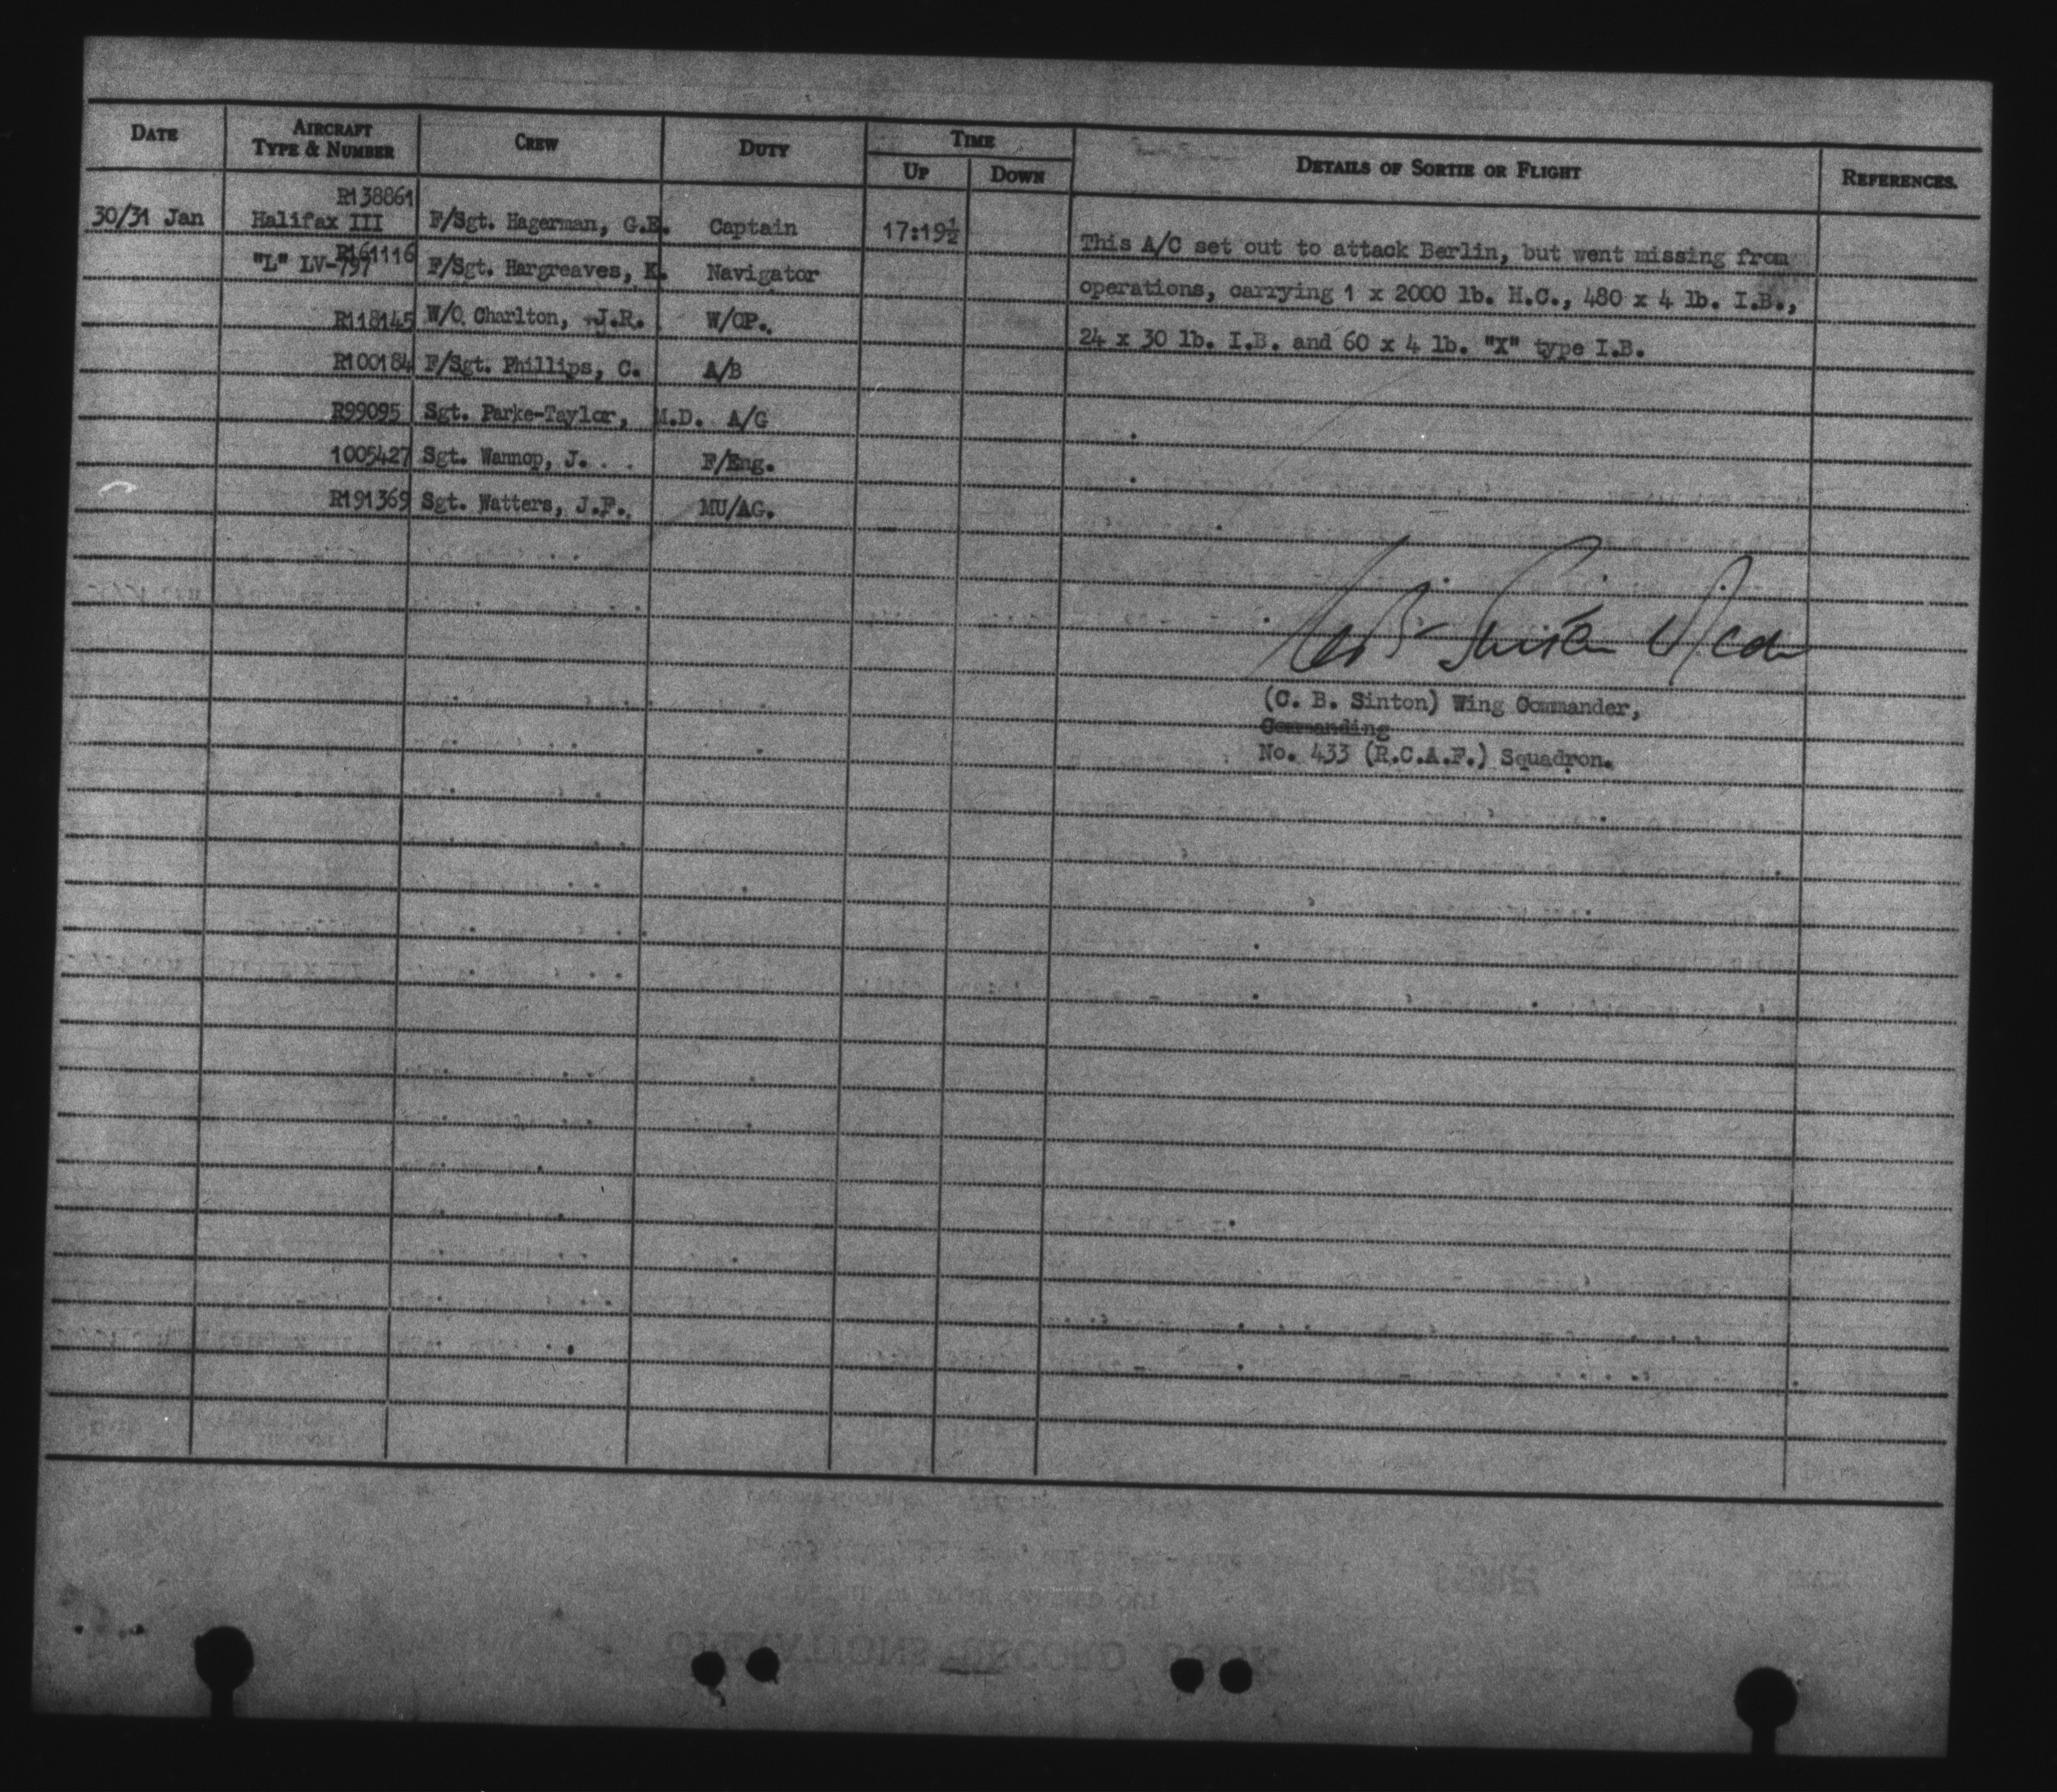 DATE AIRCRAFT TYPE & NUMBER CREW DUTY TIME UP DOWN DETAILS OF SORTIE OR FLIGHT REFERENCES.
R138861
30/31 Jan Halifax III F/Sgt. Hagerman, G.E. Captain 17:19½ This A/C set out to attack Berlin, but went missing from
R161116
"L" LV-797 F/Sgt. Hargreaves, K. Navigator operations, carrying 1 x 2000 lb. H.C., 480 x 4 lb. I.B.,
R118145 W/O. Charlton, J.R. W/OP. 24 x 30 lb. I.B. and 60 x 4 lb. "X" type I.B.
R100184 F/Sgt. Phillips, C. A/B
R99095 Sgt. Parke-Taylor, M.D. A/G
1005427 Sgt. Wannop, J. F/Eng.
R191369 Sgt. Watters, J.F. MU/AG.
(C. B. Sinton) Wing Commander,
Commanding
No. 433 (R.C.A.F.) Squadron.